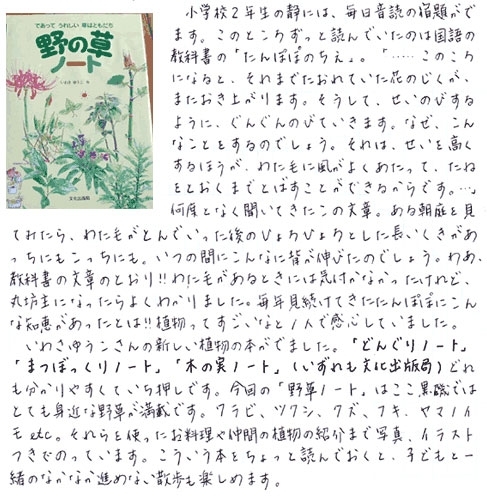 であって うれしい 草はともだち
野の草
ノート
いわさ ゆうこ 作
文化出版局
小学校2年生の静には、毎日音読の宿題がで
ます。このところずっと読んでいたのは国語の
教科書の「たんぽぽのちえ」。「……このころ
になると、それまでたおれていた花のじくが、
またおき上がります。そうして、せいのびする
ように、ぐんぐんのびていきます。なぜ、こん
なことをするのでしょう。それは、せいを高く
するほうが、わた毛に風がよくあたって、たね
をとおくまでとばすことができるからです。…」
何度となく聞いてきたこの文章。ある朝庭を見
てみたら、わた毛がとんでいった後のひょろひょろとした長いくきがあ
っちにもこっちにも。いつの間にこんなに背が伸びたのでしょう。わあ、
教科書の文章のとおり!!わた毛があるときには気付かなかったけれど、
丸坊主になったらよくわかりました。毎年見続けてきたたんぽぽにこん
な知恵があったとは!!植物ってすごいなと1人で感心していました。
いわさゆうこさんの新しい植物の本がでました。「どんぐりノート」
「まつぼっくりノート」「木の実ノート」(いずれも文化出版局)どれ
も分かりやすくていち押しです。今回の「野草ノート」はここ黒磯では
とても身近な野草が満載です。ワラビ、ツクシ、クズ、フキ、ヤマノイ
モetc。それらを使ったお料理や仲間の植物の紹介まで写真、イラスト
つきでのっています。こういう本をちょっと読んでおくと、子どもと一
緒のなかなか進めない散歩も楽しめます。